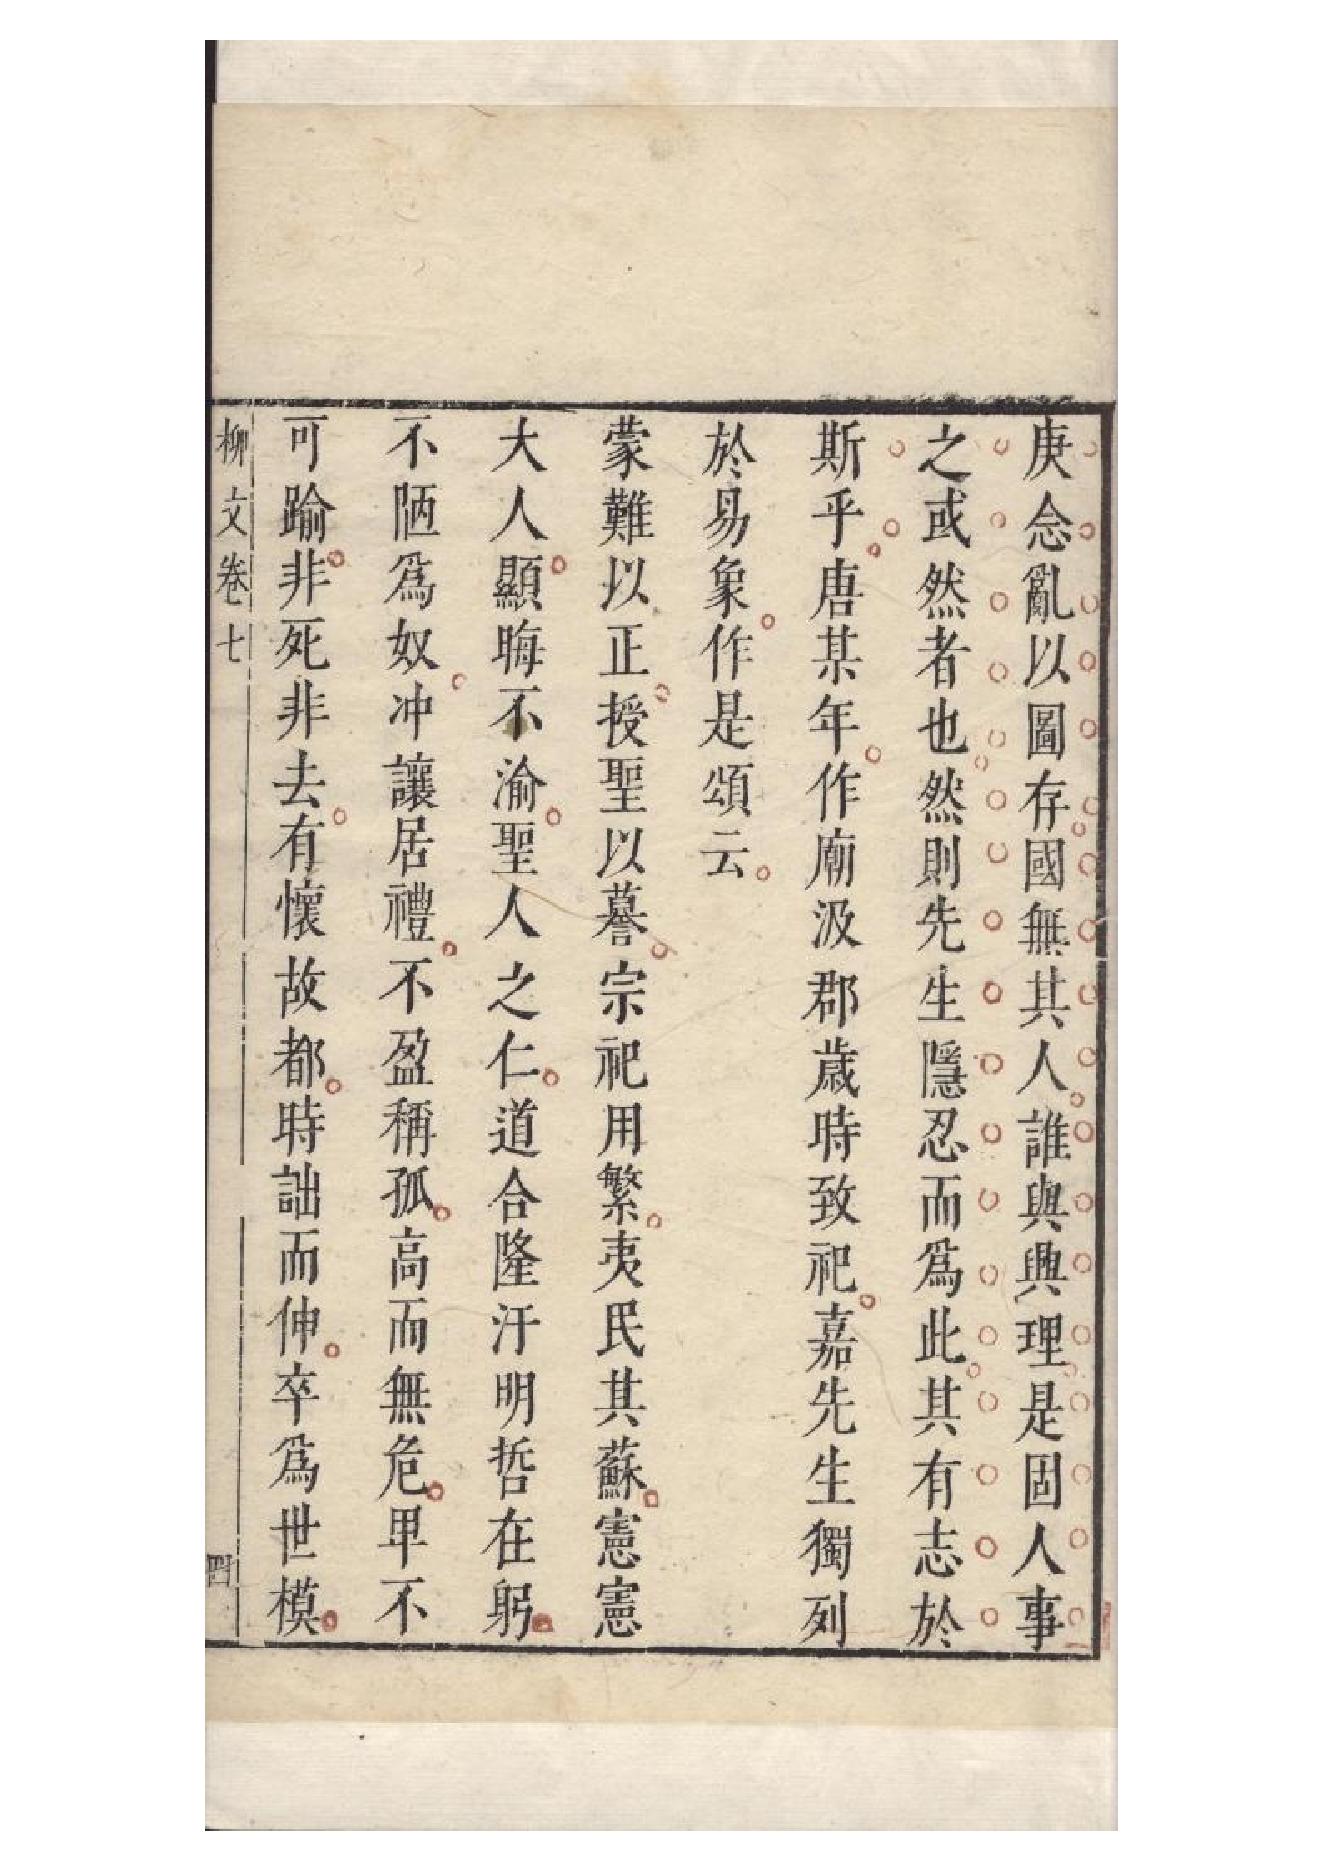 庚念亂以圖存國無其人誰與興理是固人事
之或然者也然則先生隱忍而爲此其有志於
斯乎唐某年作廟汲郡歲時致祀嘉先生獨列
於易象作是頌云
蒙難以正授聖以謩宗祀用繁夷民其蘇憲憲
大人顯晦不渝聖人之仁道合隆汙明哲在躬
不陋爲奴冲讓居禮不盈稱孤高而無危卑不
可踰非死非去有懷故都時詘而伸卒爲世模
柳文卷七
四